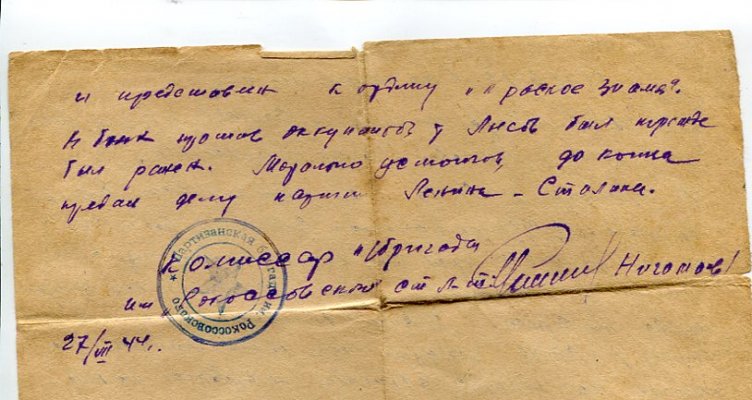 и представлен к ордену "Красное Знамя".
В боях против оккупантов у был
был ранен. Морально устойчив, до конца
предан делу партии Ленина - Сталина.
Комиссар бригады
им. Рокоссовского ст. л-т.
27/VIII 44.
Партизанская бригада им. Рокоссовского